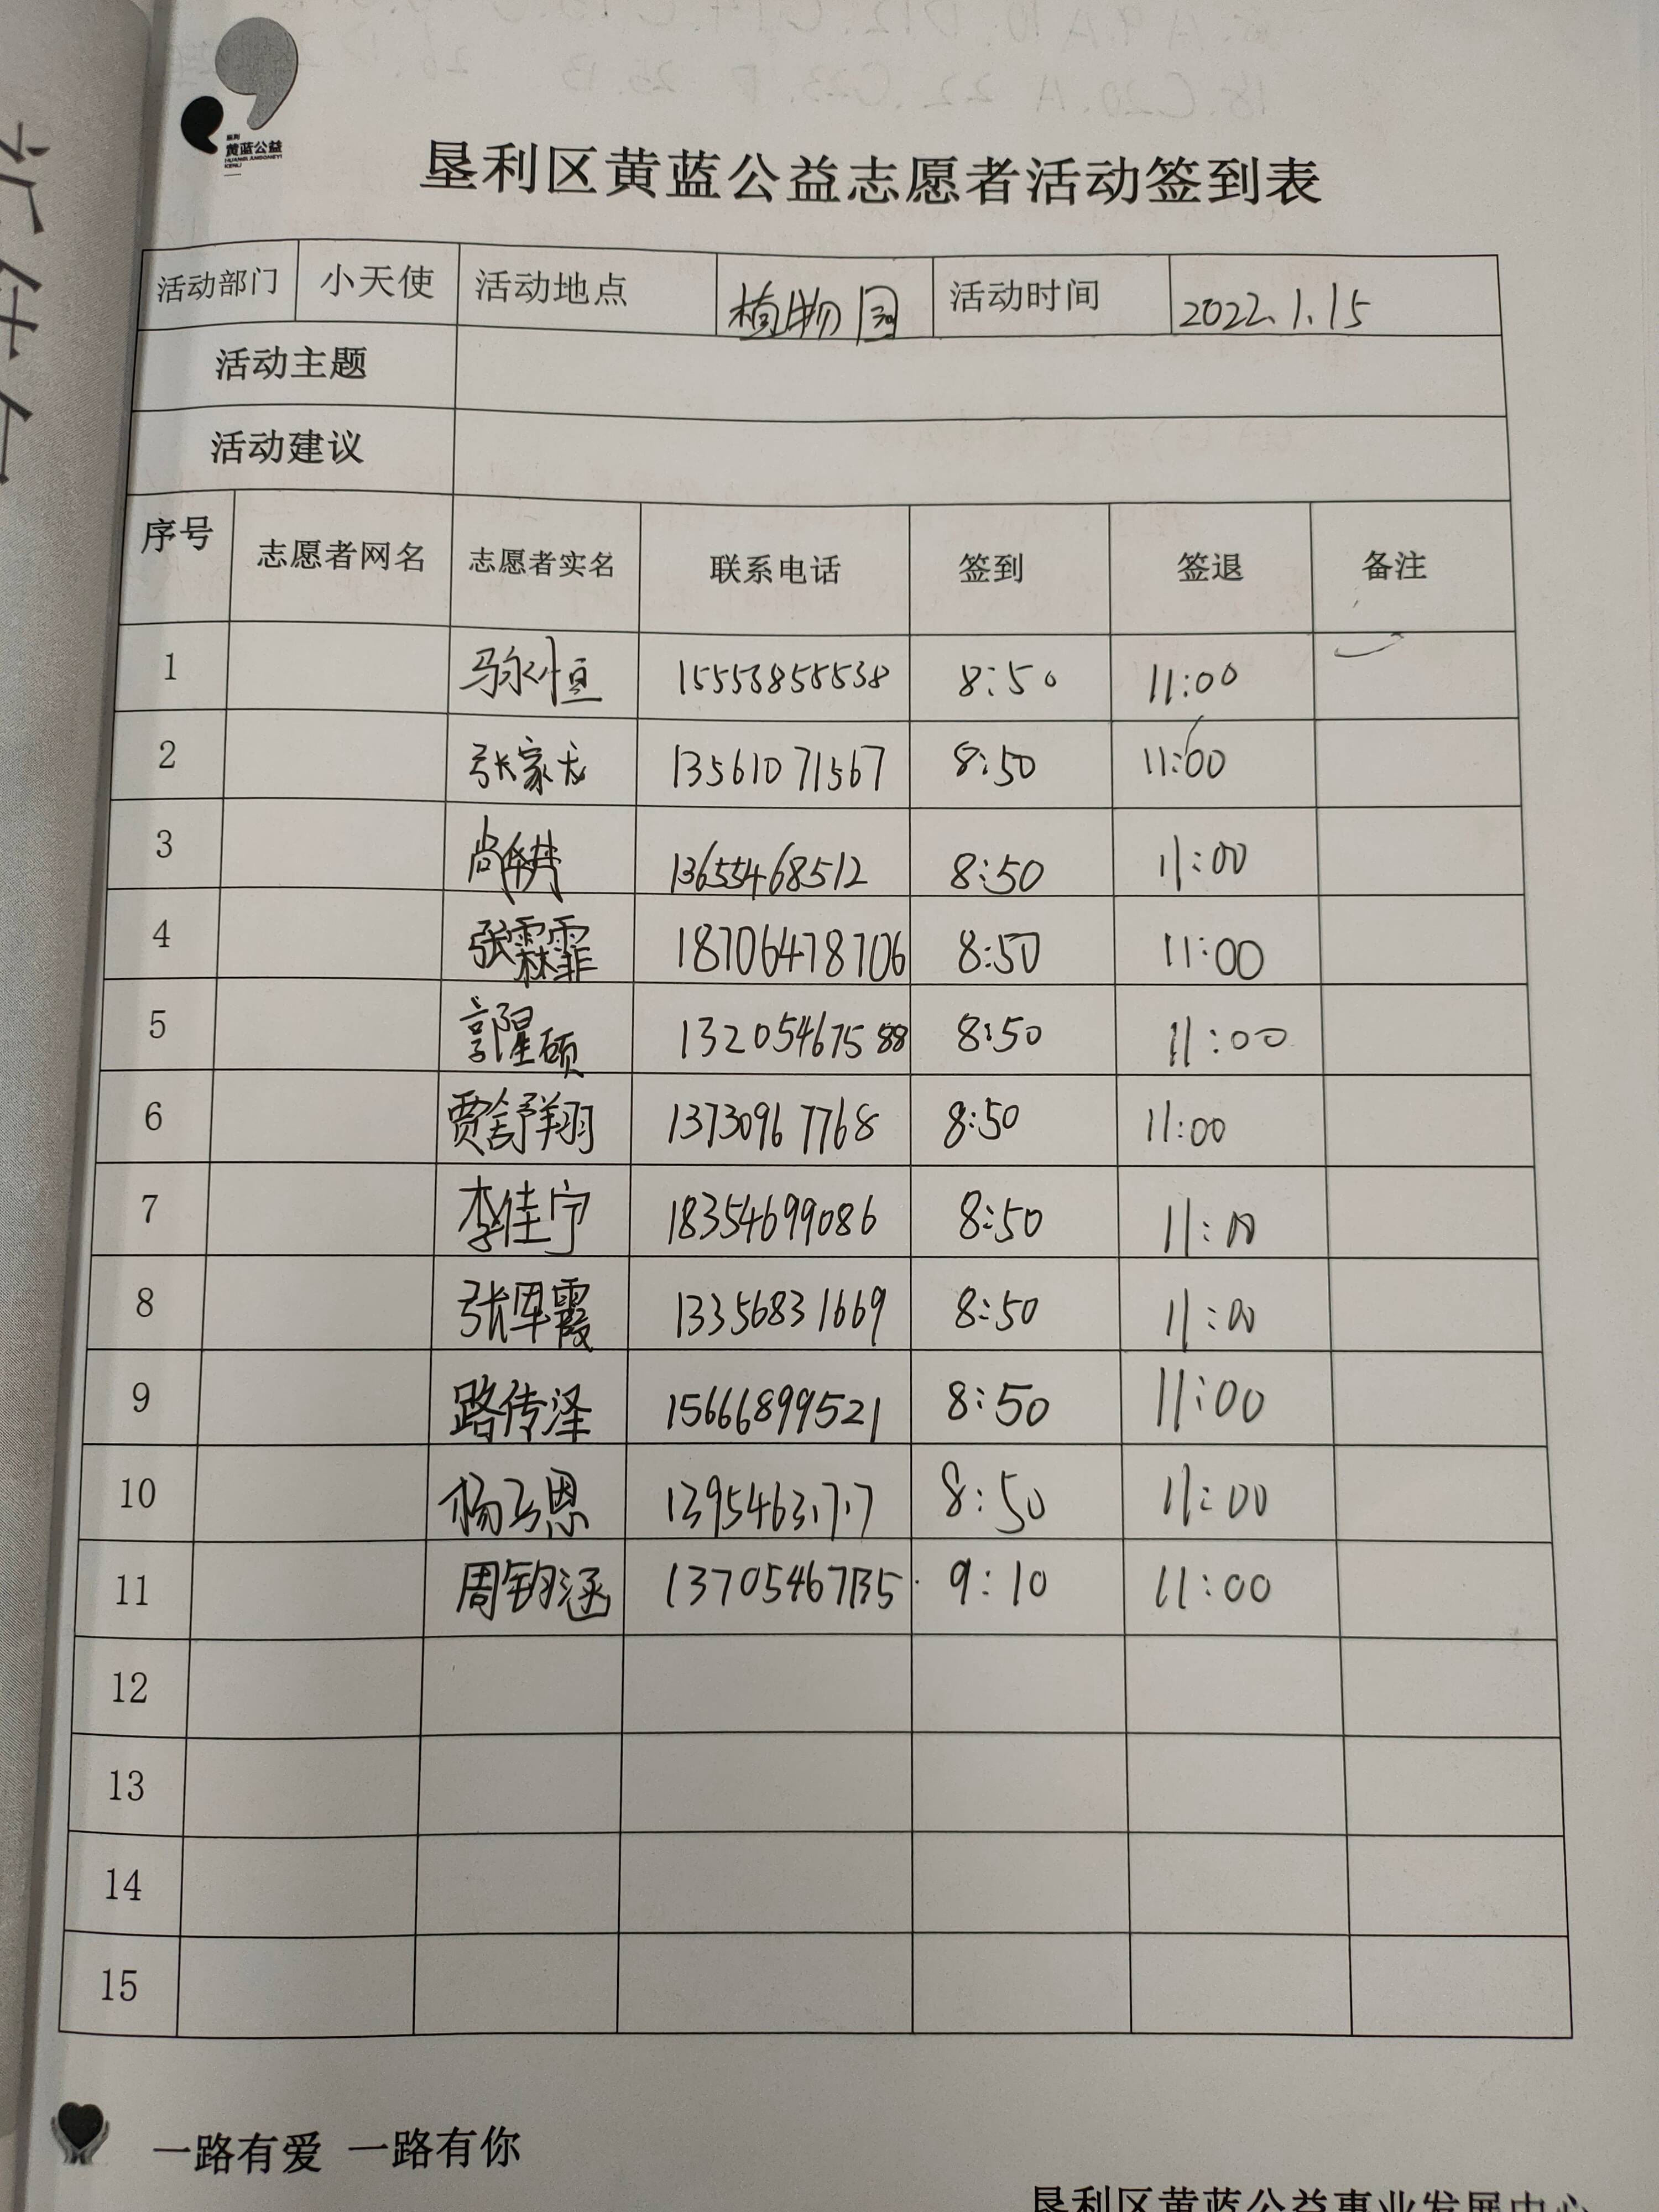 垦利
黄蓝公益
垦利区黄蓝公益志愿者活动签到表
活动部门 小天使 活动地点 植物园 活动时间 2022.1.15
活动主题
活动建议
序号 志愿者网名 志愿者实名 联系电话 签到 签退 备注
1 马永恒 15553855538 8:50 11:00
2 张家龙 13561071567 8:50 11:00
3 尚 13655468512 8:50 11:00
4 张霖霏 18706478706 8:50 11:00
5 郭星硕 13205467588 8:50 11:00
6 贾舒翔 13730967768 8:50 11:00
7 李佳宁 18354699086 8:50 11:00
8 张军霞 13356831669 8:50 11:00
9 路传泽 15666899521 8:50 11:00
10 杨云恩 13954631717 8:50 11:00
11 周钧涵 13705467135 9:10 11:00
12
13
14
15
一路有爱 一路有你
垦利区黄蓝公益事业发展中心